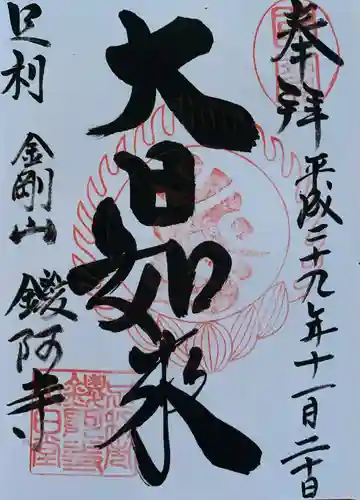 奉拝
平成二十九年十一月二十日
大日如来
足利
金剛山
鑁阿寺